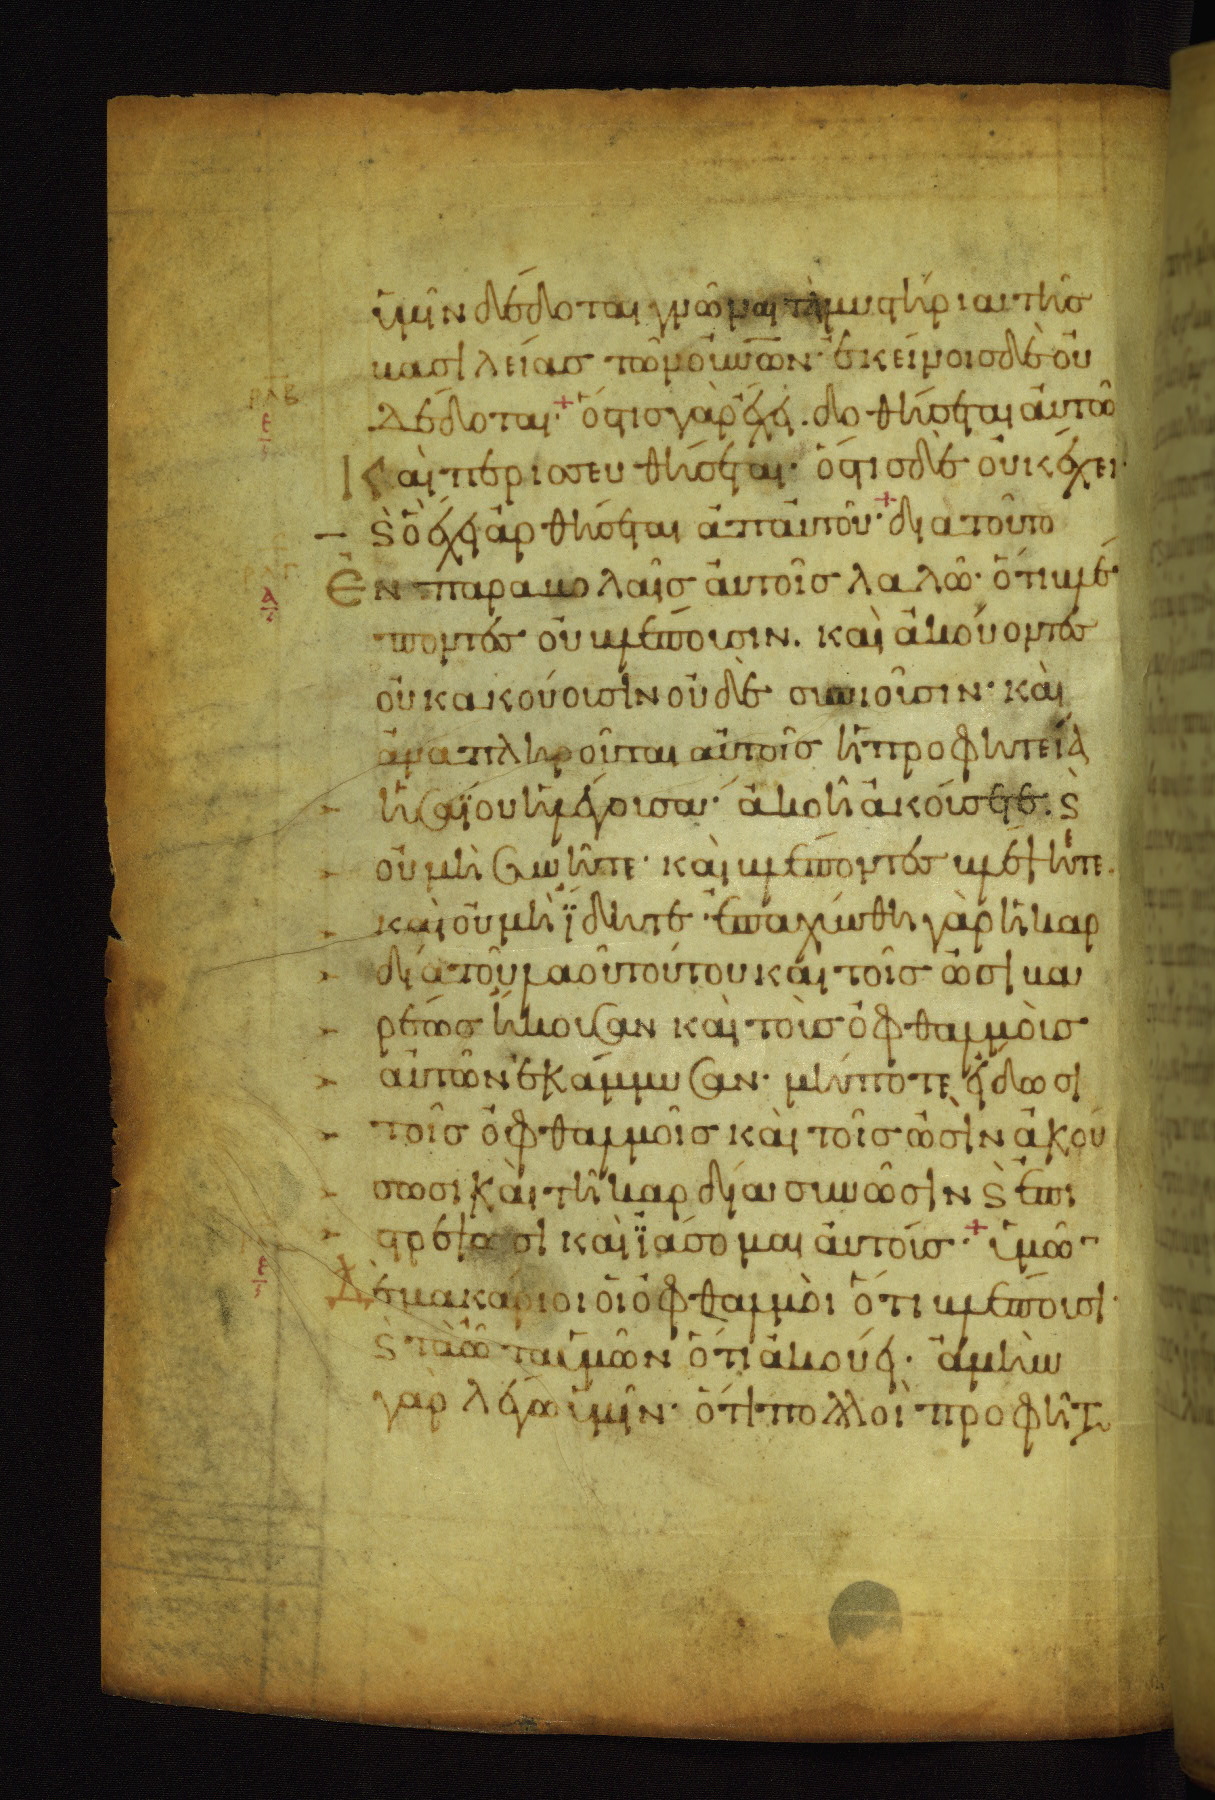 ὑμῖν δέδοται γνῶναι τὰ μυστήρια τῆς
βασιλείας τῶν οὐνῶν· ἐκείνοις δὲ οὐ
δέδοται·+ ὅστις γὰρ ἔχει. δοθήσεται αὐτῶ
Καὶ περισσευθήσεται· ὅστις δὲ οὐκ ἔχει·
ϛ ὃ ἔχει ἀρθήσεται ἀπ αὐτοῦ·+ διατοῦτο
ρλβ
ε
ρλγ
α
Ἐν παραβολαῖς αὐτοῖς λαλῶ· ὅτι βλέ
ποντες οὐ βλέπουσιν. καὶ ἀκούοντες
οὐκ ἀκούουσιν οὐδὲ συνιοῦσιν· καὶ
ἀναπληροῦται αὐτοῖς ἡ προφητεία
ἡσαΐου ἡ λέγουσα· ἀκοῆ ἀκούσετε. ϛ
οὐ μὴ συνῆτε· καὶ βλέποντες βλέψητε.
καὶ οὐ μὴ ἴδητε· ἐπαχύνθη γὰρ ἡ καρ
δία τοῦ λαοῦ τούτου καὶ τοῖς ὠσὶ βα
ρέως ἤκουσαν καὶ τοὺς ὀφθαλμοὺς
αὐτῶν ἐκάμμυσαν· μήποτε ἴδωσι
τοῖς ὀφθαλμοῖς καὶ τοῖς ὠσὶν ἀκού
σωσι καὶ τῆ καρδία συνῶσιν ϛ ἐπι
στρέψωσι καὶ ἰάσομαι αὐτούς·+ ὑμῶ
ε
Δὲ μακάριοι οἱ ὀφθαλμοὶ ὅτι βλέπουσι·
ϛ τὰ ὦτα ὑμῶν ὅτι ἀκούει· ἀμὴν
γὰρ λέγω ὑμῖν· ὅτι πολλοὶ προφῆται